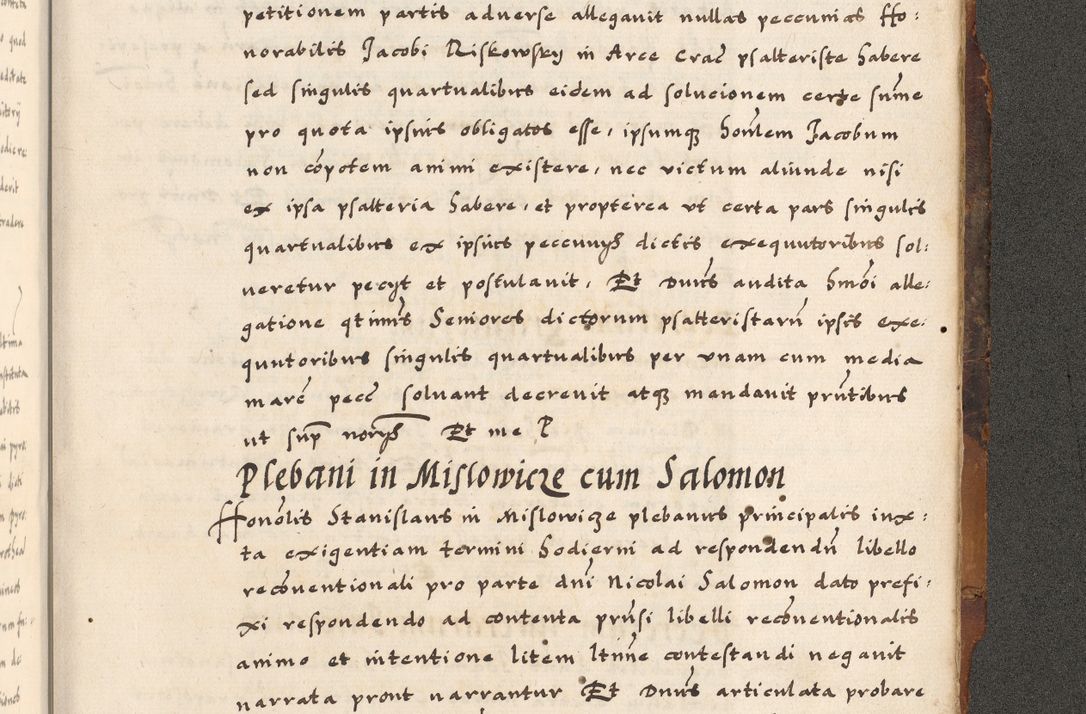 petitionem partis adverse allegavit nullas peccunias Ho:
norabilis Jacobi Riskowsky in Arce Crac̄ psalteriste habere
sed singulis quartualibus eidem ad solucionem certe sum̄e
pro quota ipsius obligatos esse, ipsumqȝ hon̄lem Jacobum
non cōpotem animi existere, nec victum aliunde nisi
ex ipsa psalteria habere, et propterea ut certa pars singulis
quartualibus ex ipsius peccunijs dictis exequutoribus sol:
veretur pecijt et postulavit, Et Dnūs audita hmōi alle:
gatione qtimūs Seniores dictorum psalteristarū ipsis exe:
quutoribus singulis quartualibus per unam cum media
marc̄ pecc̄ solvant decrevit atqȝ mandavit prn̄tibus
ut sup̄ norijs Et me P
Plebani in Mislowicze cum Salomon
Honōlis Stanislaus in Mislowicze plebanus principalis iux:
ta exigentiam termini hodierni ad respondendū libello
recōventionali pro parte dnī Nicolai Salomon dato prefi:
xi respondendo ad contenta prn̄si libelli recōventionalis
animo et intentione litem ltim̄e contestandi negavit
narrata prout narrantur Et Dnūs articulata probare